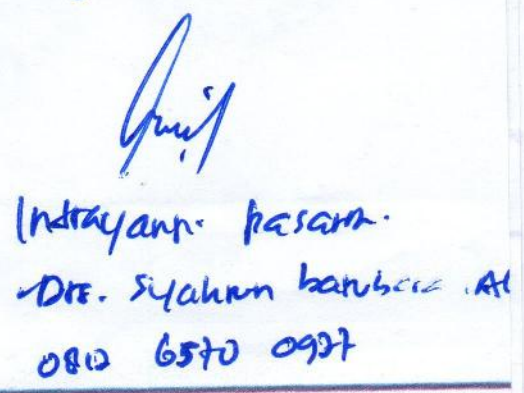 Indrayani. Pasaran.
Drs. Syahrun batubara .AK
0812 6570 0927